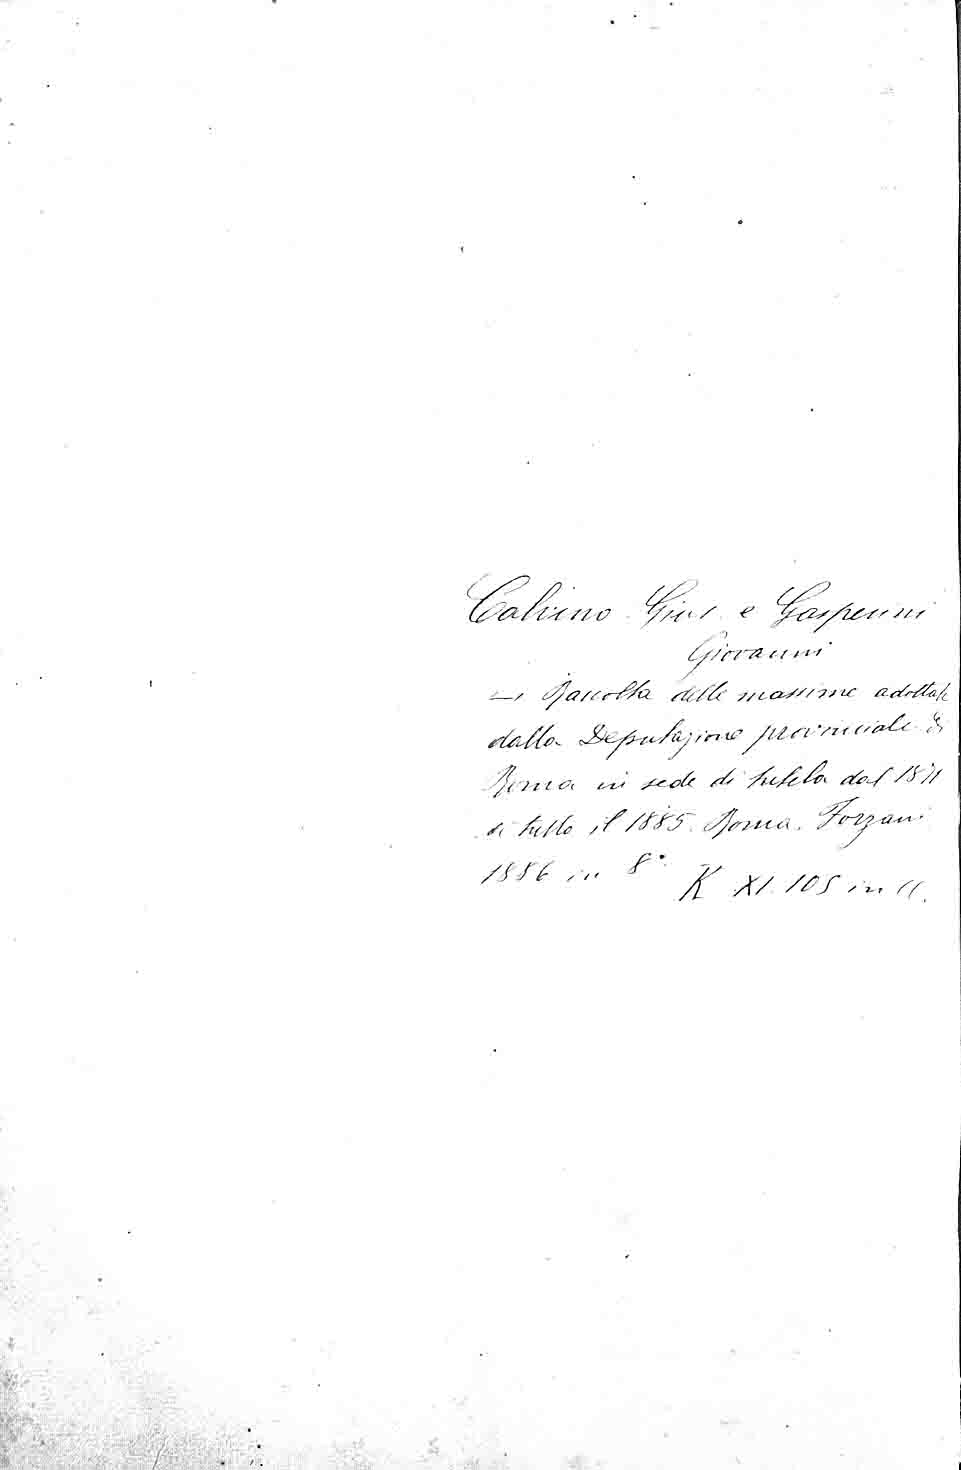 Calvino Gius. e Gasperini
Giovanni
— Raccolta delle massime adottate
dalla Deputazione provinciale di
Roma in sede di tutela dal 1871
a tutto il 1885. Roma. Forzani
1886 in 8°.
K XI. 105 in 11.